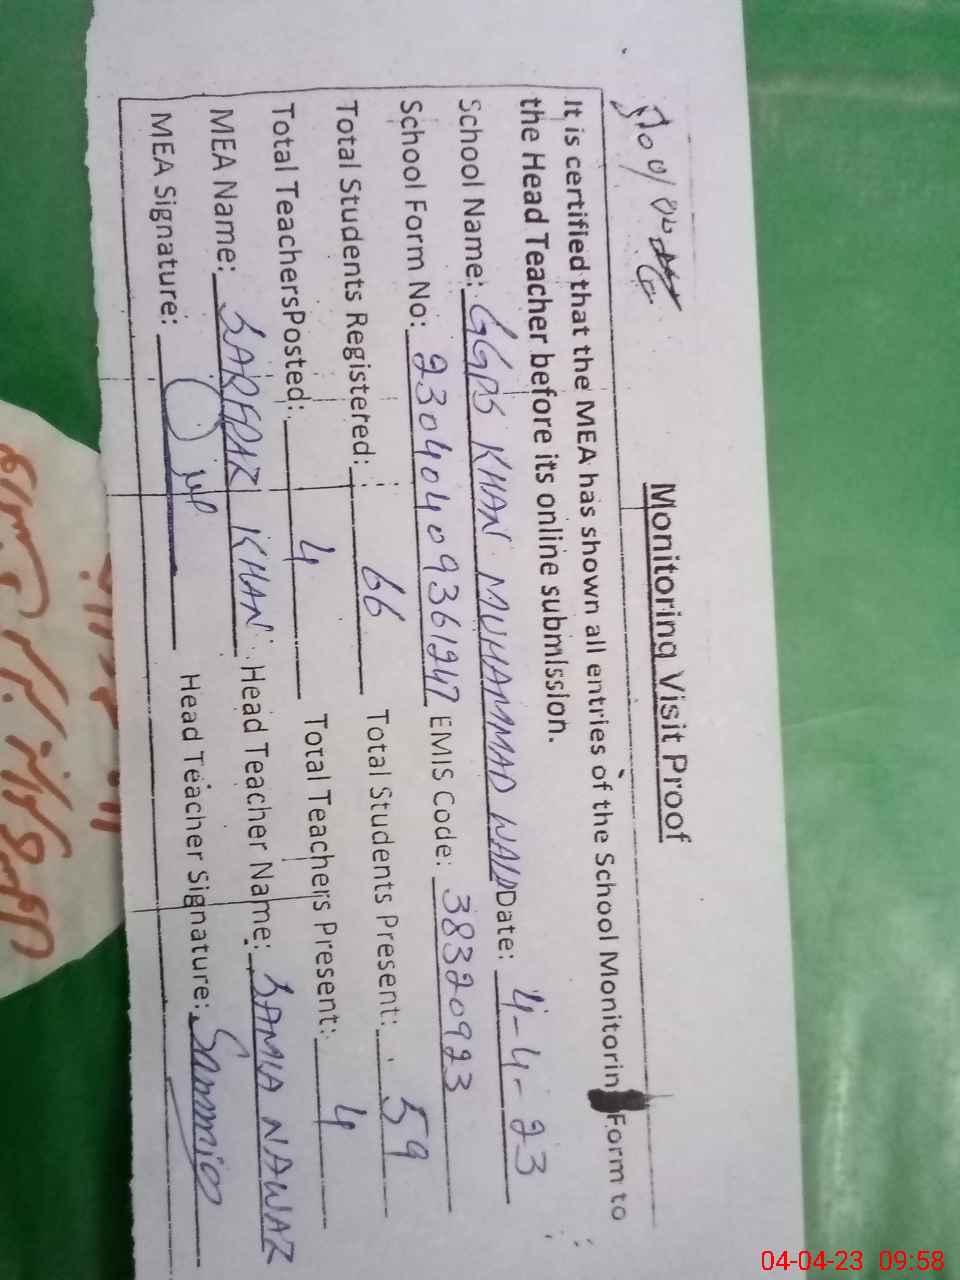 Monitoring Visit Proof
It is certified that the MEA has shown all entries of the School Monitorin Form to
the Head Teacher before its online submission.
School Name: GGPS KHAN MUHAMMAD WALD Date: 4-4-23
School Form No: 23040409361247 EMIS Code: 38320923
Total Students Registered: 66 Total Students Present: 59
Total TeachersPosted: 4 Total Teachers Present: 4
MEA Name: SARFRAZ KHAN Head Teacher Name: SAMIA NAWAZ
MEA Signature: Head Teacher Signature:
04-04-23 09:58